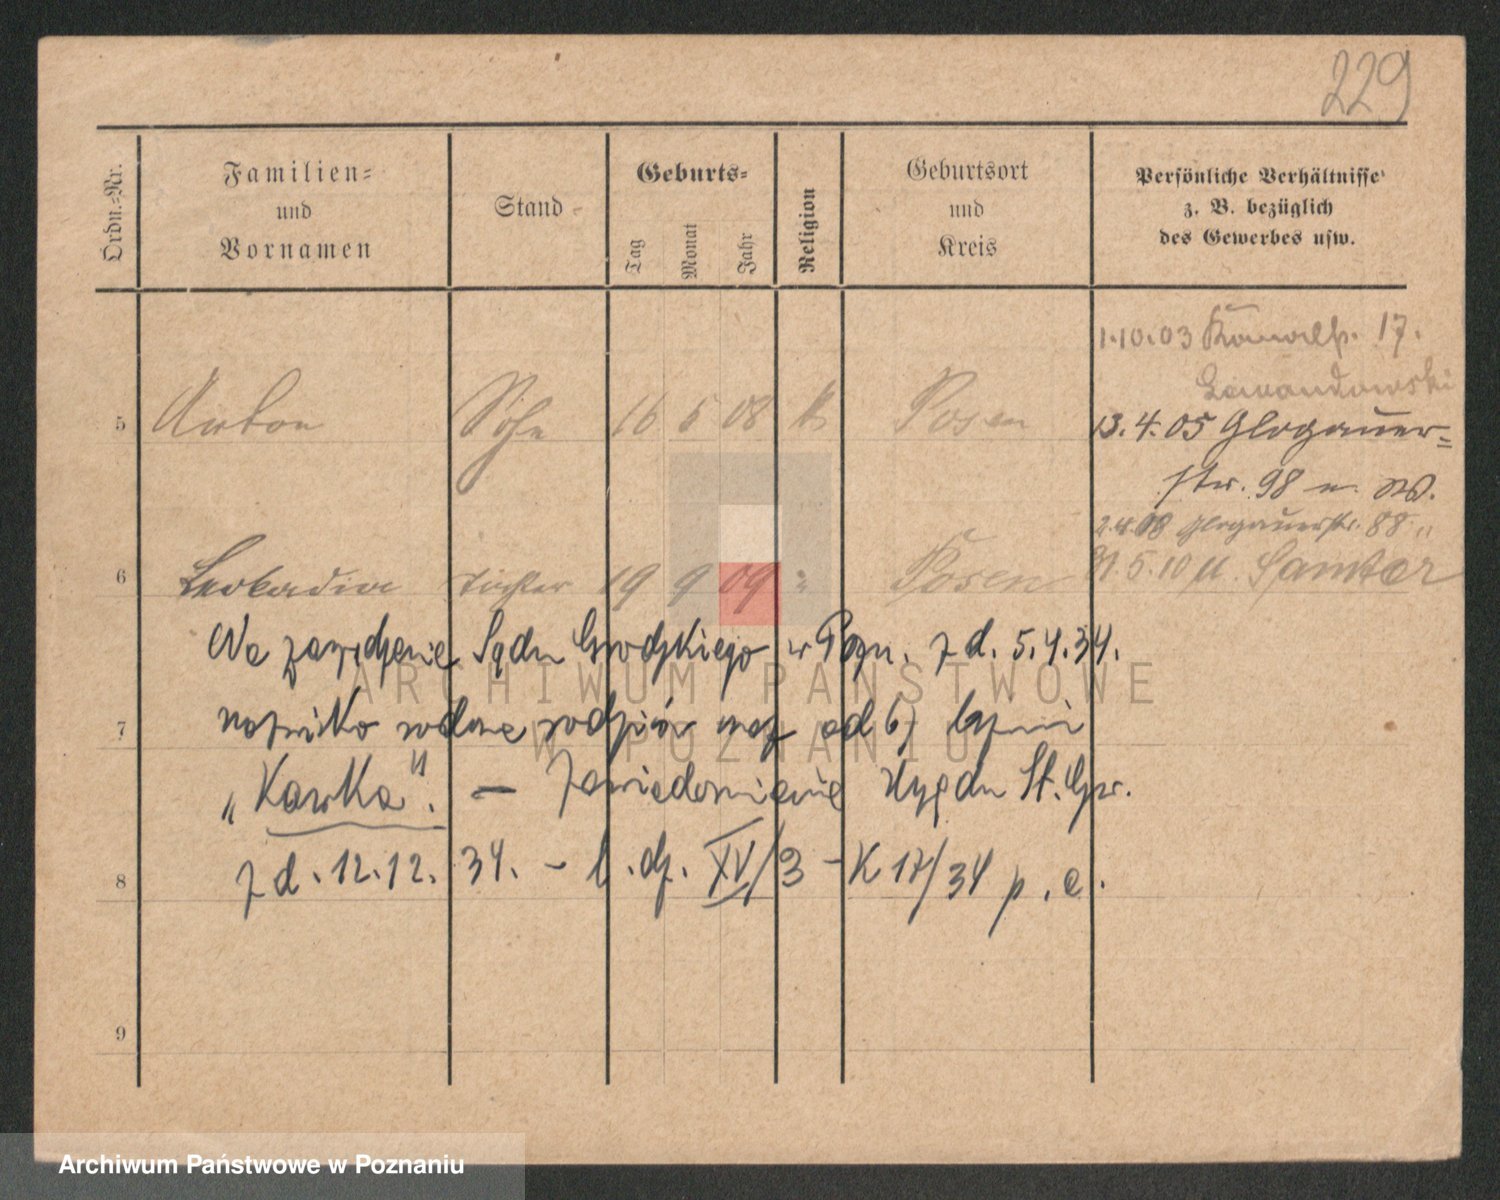 229
Ordn.-Nr.
Familien-
und
Vornamen
Stand
Geburts-
Tag
Monat
Jahr
Religion
Geburtsort
und
Kreis
Persönliche Verhältnisse
z. B. bezüglich
des Gewerbes usw.
1.10.03 17.
Lewandowski
5 Anton Sohn 16 5 08 k Posen
13.4.05 Glogauer-
str. 98 n. W.
2.4.08 Glogauerstr. 88 "
6 Leokadia Tochter 19 9 09 " Posen
31.5.10 n. Samter
Na zarządzenie Sądu Grodzkiego w Pozn. z d. 5.4.34.
7 nazwisko rodowe od 6) brzmi
"Kawka". — Zawiadomienie Urzędu St. Cyw.
8 z d. 12.12.34. - l.dz. XV/3 - K 17/34
9
ARCHIWUM PAŃSTWOWE
W POZNANIU
Archiwum Państwowe w Poznaniu